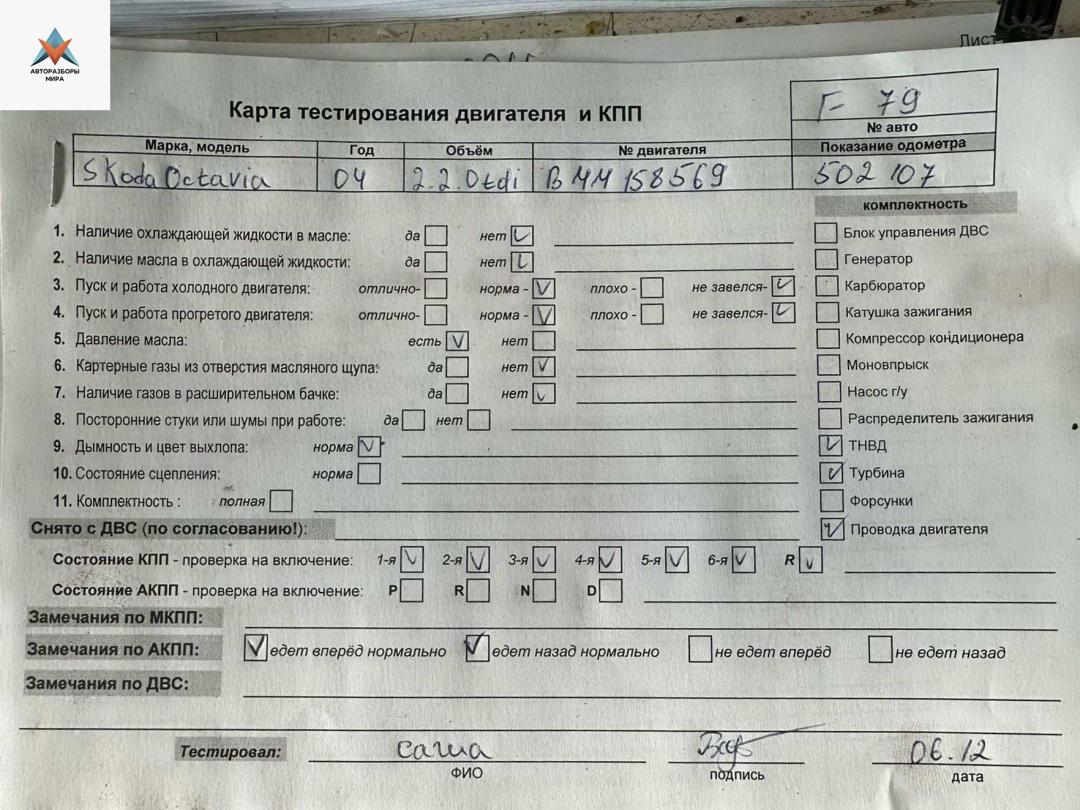 АВТОРАЗБОРЫ
МИРА
Лист
Карта тестирования двигателя и КПП
F- 79
№ авто
Марка, модель Год Объём № двигателя Показание одометра
Skoda Octavia 04 2.2.0tdi BMM 158569 502 107
комплектность
1. Наличие охлаждающей жидкости в масле: да нет
Блок управления ДВС
2. Наличие масла в охлаждающей жидкости: да нет
Генератор
3. Пуск и работа холодного двигателя: отлично- норма - плохо - не завелся-
Карбюратор
4. Пуск и работа прогретого двигателя: отлично- норма - плохо - не завелся-
Катушка зажигания
5. Давление масла: есть нет
Компрессор кондиционера
6. Картерные газы из отверстия масляного щупа: да нет
Моновпрыск
7. Наличие газов в расширительном бачке: да нет
Насос г/у
8. Посторонние стуки или шумы при работе: да нет
Распределитель зажигания
9. Дымность и цвет выхлопа: норма
ТНВД
10. Состояние сцепления: норма
Турбина
11. Комплектность : полная
Форсунки
Снято с ДВС (по согласованию!):
Проводка двигателя
Состояние КПП - проверка на включение: 1-я 2-я 3-я 4-я 5-я 6-я R
Состояние АКПП - проверка на включение: P R N D
Замечания по МКПП:
Замечания по АКПП: едет вперёд нормально едет назад нормально не едет вперёд не едет назад
Замечания по ДВС:
Тестировал: саша 06.12
ФИО подпись дата